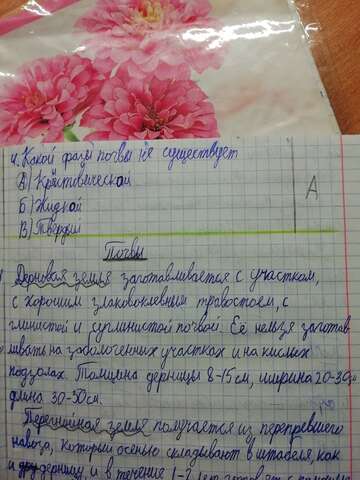 4. Какой фазы почвы не существует
А) Кристивической
Б) Жидкой
В) Твёрдой
А
Почвы
Дерновая земля заготавливается с участком,
с хорошим злаковоклевным травостоем, с
глинистой и суглинистой почвой. Её нельзя заготав
ливать на заболоченных участках и на кислых
подзолах. Толщина дернины 8-15 см, ширина 20-30
длина 30-50 см.
Перегнойная земля получается из перепревшего
навоза, который осенью складывают в штабеля, как
и дернину, и в течение 1-2